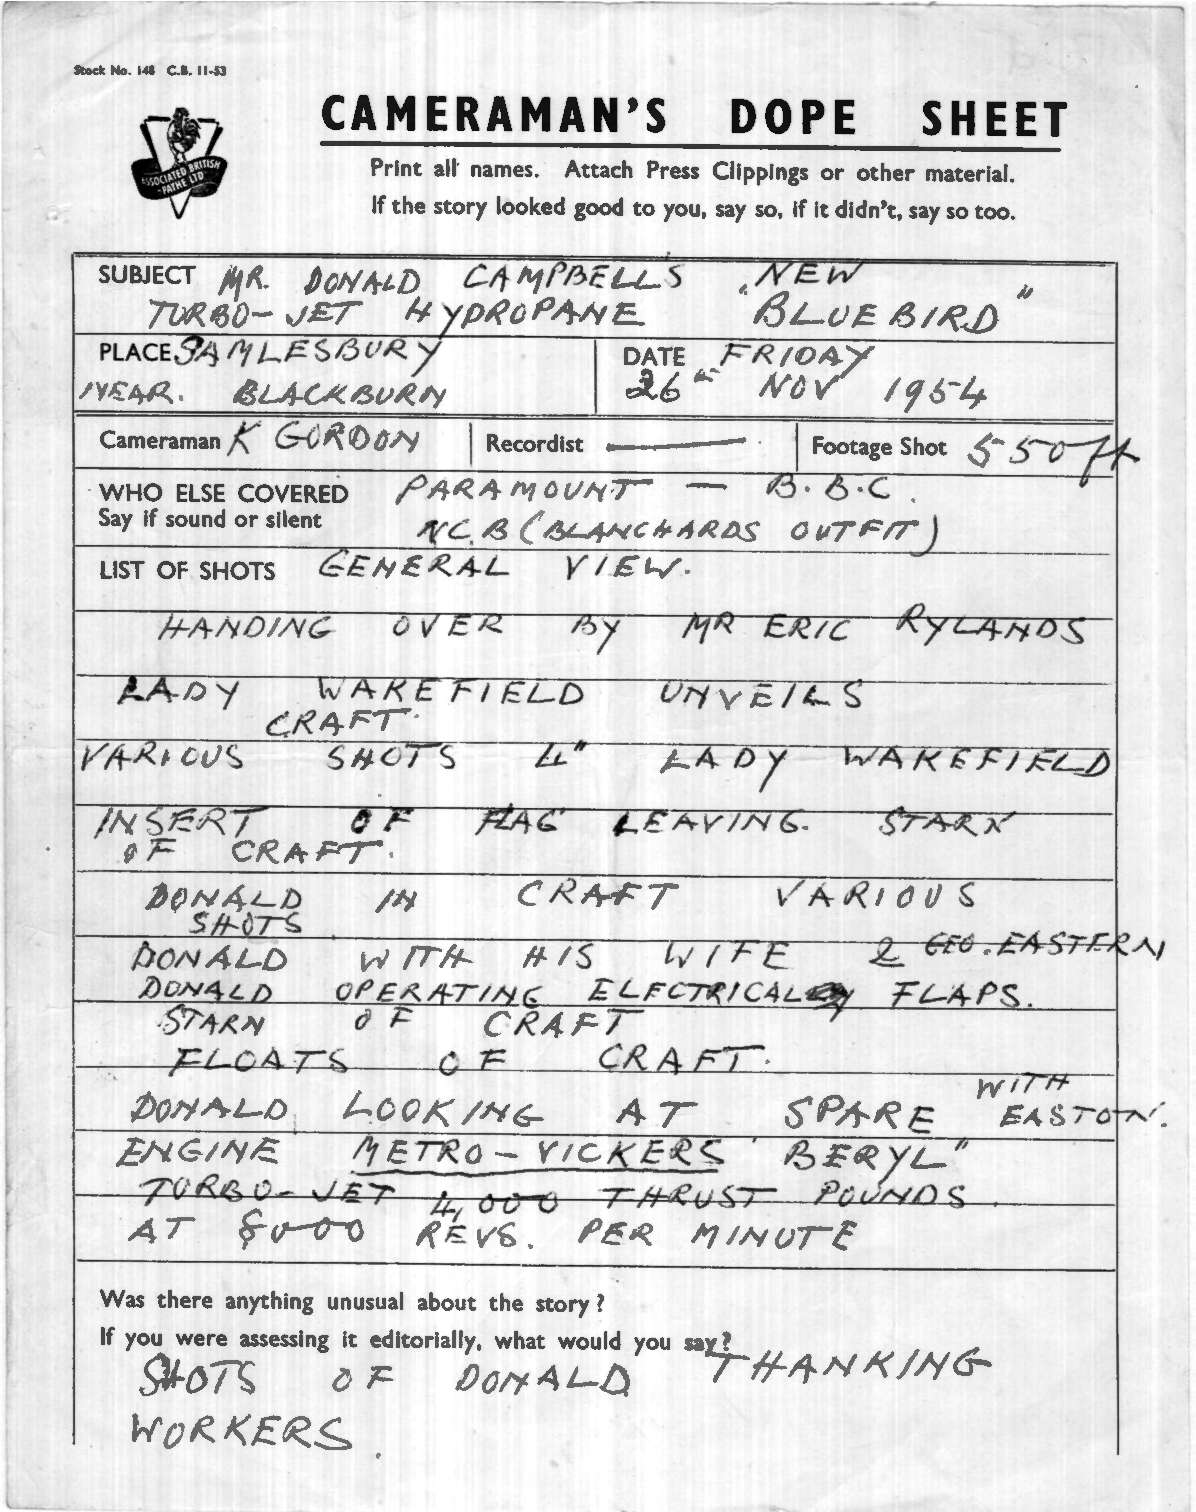 Stock No. 148 C.B. 11-53
CAMERAMAN'S DOPE SHEET
ASSOCIATED BRITISH
-PATHE LTD
Print all names. Attach Press Clippings or other material.
If the story looked good to you, say so, if it didn't, say so too.
SUBJECT MR. DONALD CAMPBELLS NEW
TURBO-JET HYDROPANE "BLUEBIRD"
PLACE SAMLESBURY
NEAR. BLACKBURN
DATE FRIDAY
26th NOV 1954
Cameraman K GORDON
Recordist —
Footage Shot 550 ft
WHO ELSE COVERED PARAMOUNT — B.B.C.
Say if sound or silent N.C.B (BLANCHARDS OUTFIT)
LIST OF SHOTS GENERAL VIEW.
HANDING OVER BY MR ERIC RYLANDS
LADY WAKEFIELD UNVEILS
CRAFT.
VARIOUS SHOTS 4" LADY WAKEFIELD
INSERT OF FLAG LEAVING. STARN
OF CRAFT.
DONALD IN CRAFT VARIOUS
SHOTS
DONALD WITH HIS WIFE & GEO. EASTERN
DONALD OPERATING ELECTRICAL FLAPS.
STARN OF CRAFT
FLOATS OF CRAFT.
DONALD LOOKING AT SPARE WITH EASTON.
ENGINE METRO-VICKERS "BERYL"
TURBO-JET 4,000 THRUST POUNDS.
AT 8000 REVS. PER MINUTE
Was there anything unusual about the story?
If you were assessing it editorially, what would you say?
SHOTS OF DONALD THANKING
WORKERS.